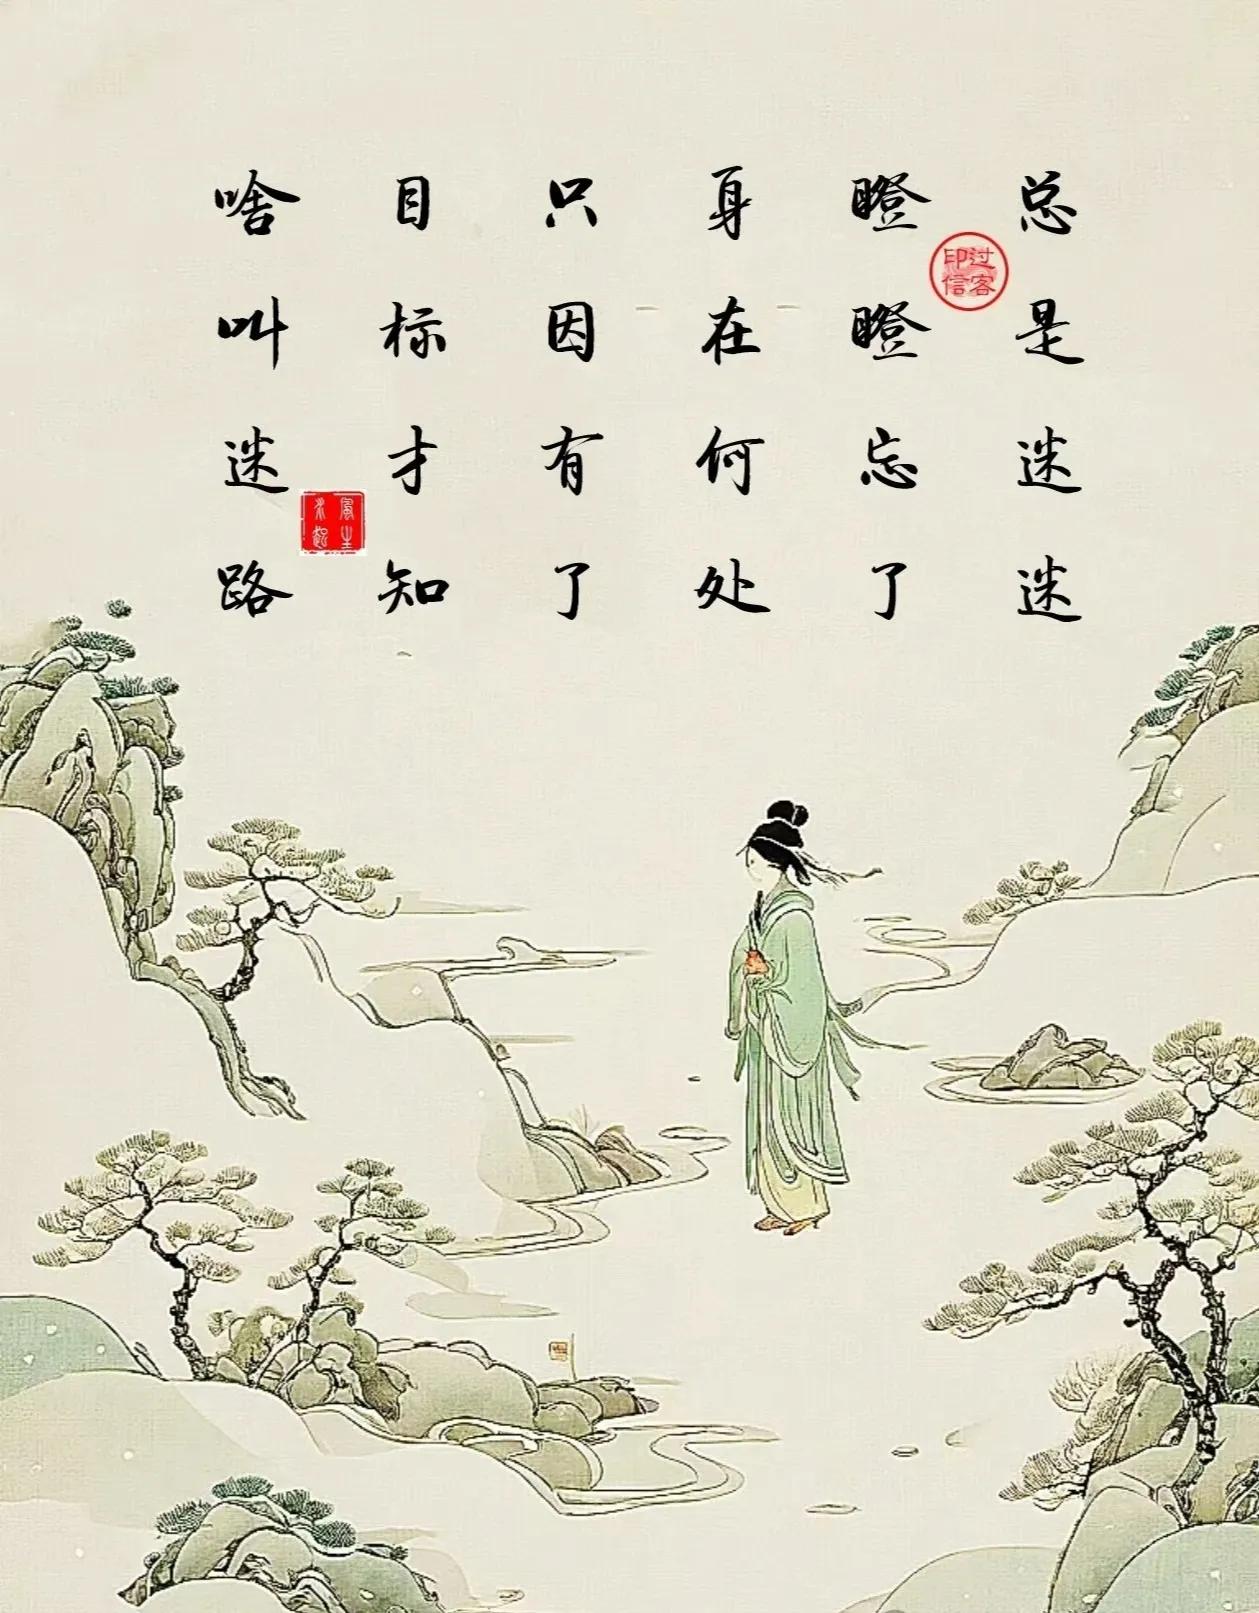 总是迷迷
瞪瞪忘了
身在何处
只因有了
目标才知
啥叫迷路
过客
印信